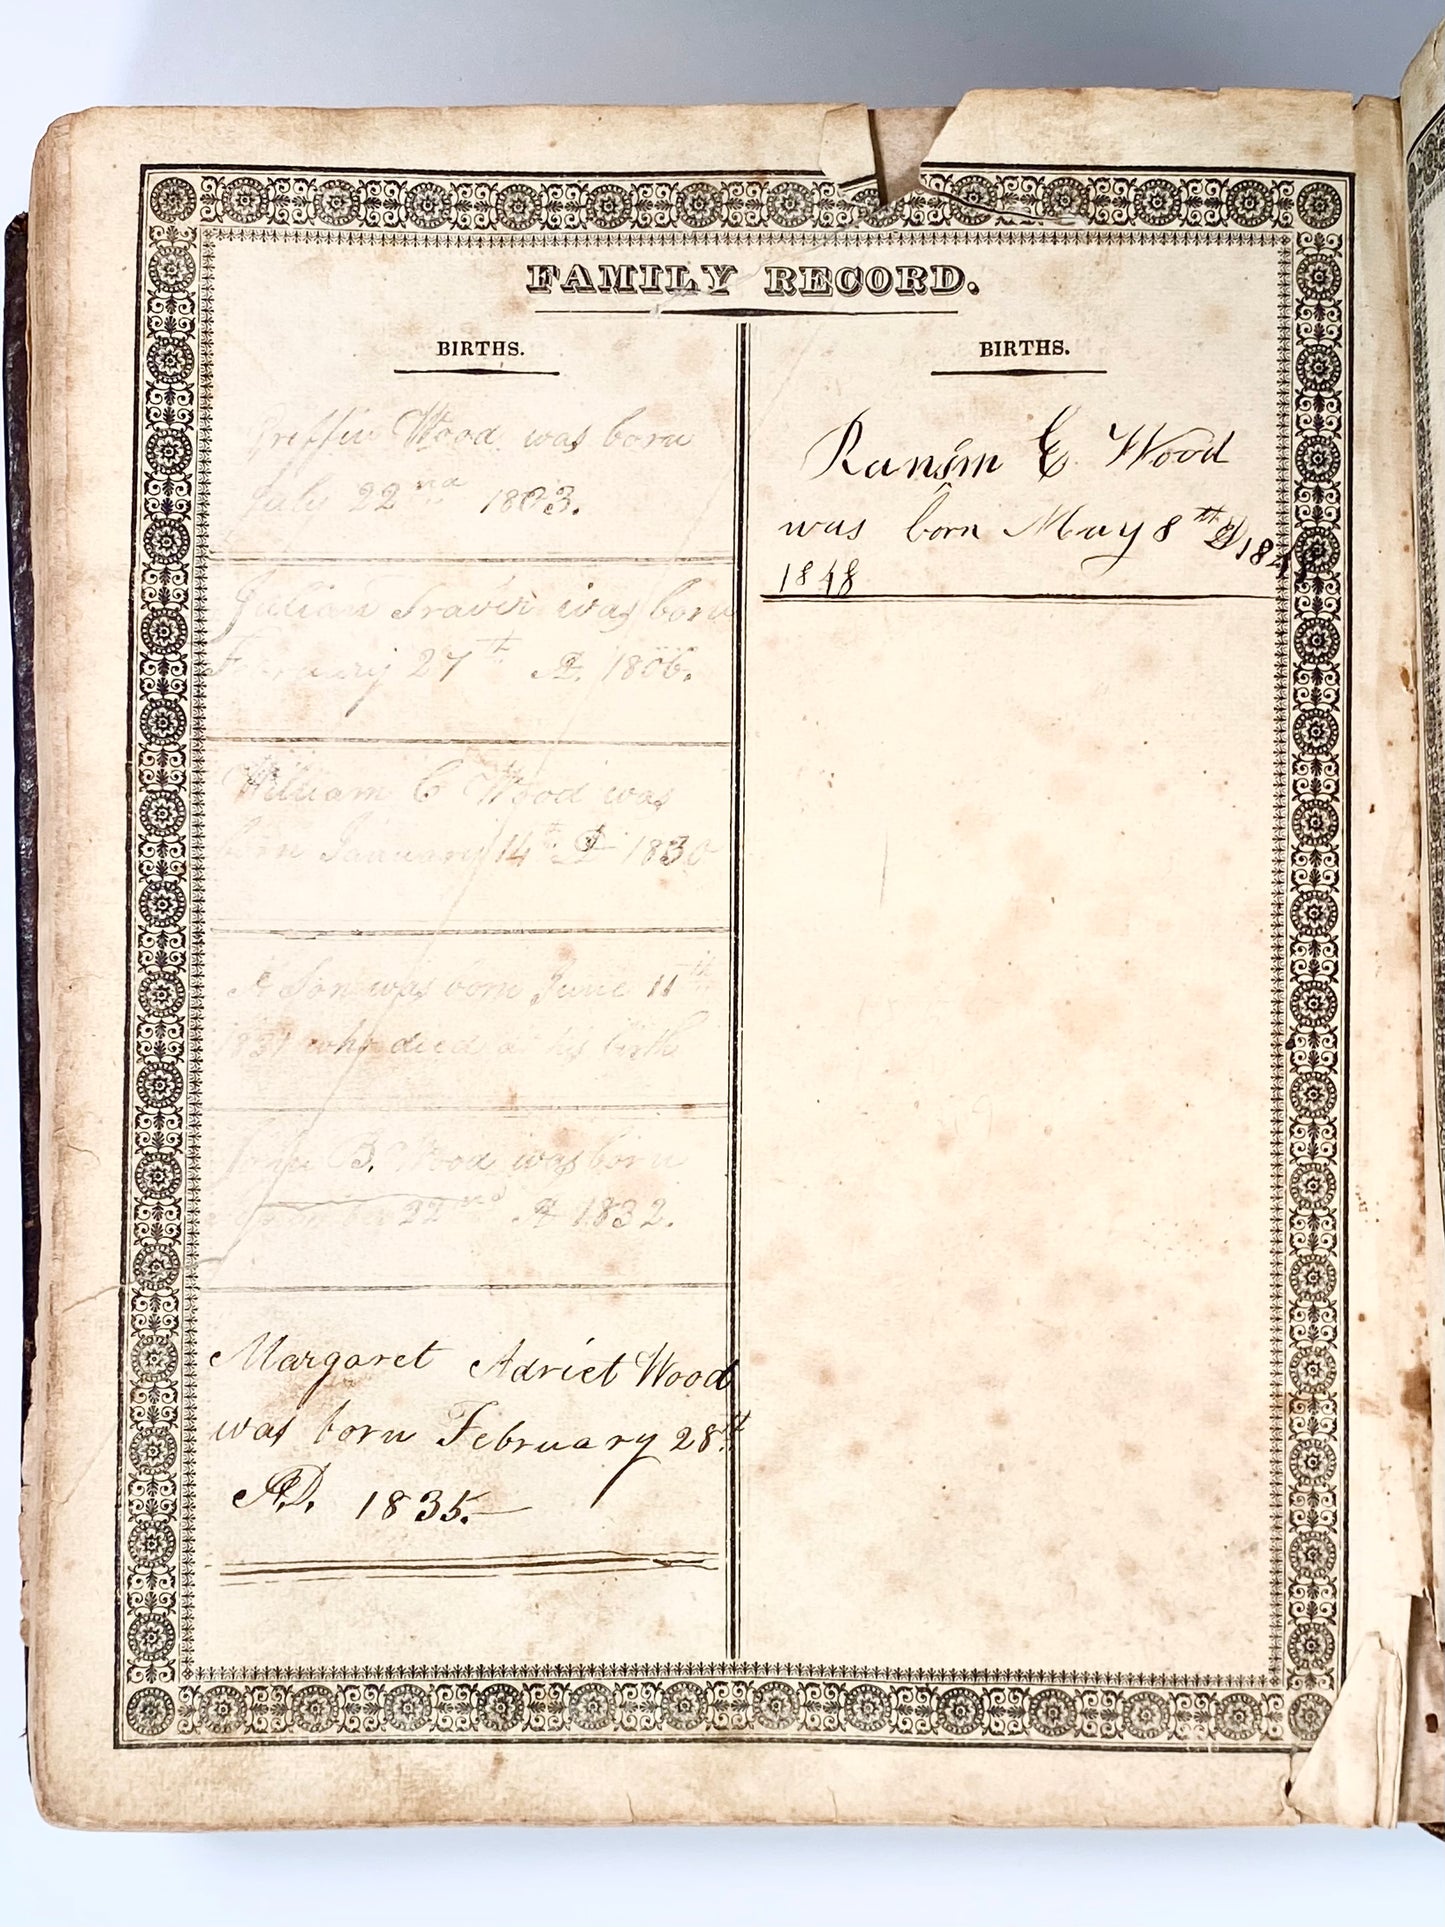 FAMILY RECORD.
BIRTHS.
Griffin Wood was born
July 22nd 1803.
Julian Traver was born
February 27th A. 1806.
William C Wood was
born January 14th A 1830
A Son was born June 11th
1831 who died at his birth
John B. Wood was born
22nd A 1832.
Margaret Adriet Wood
was born February 28th
A.D. 1835.
BIRTHS.
Ransom E Wood
was born May 8th
1848